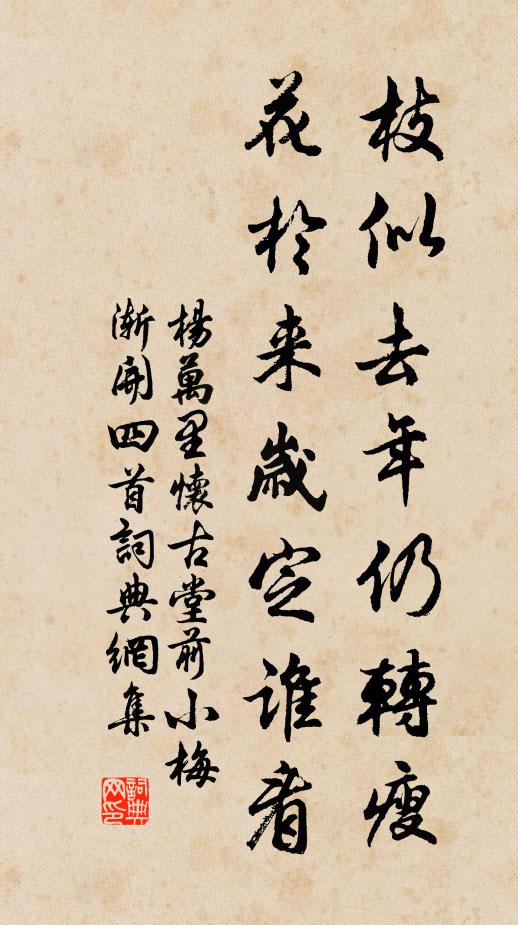 枝似去年仍轉瘦
花於来歲定誰看
楊萬里懷古堂前小梅
漸開四首詞典網集
詞典网印